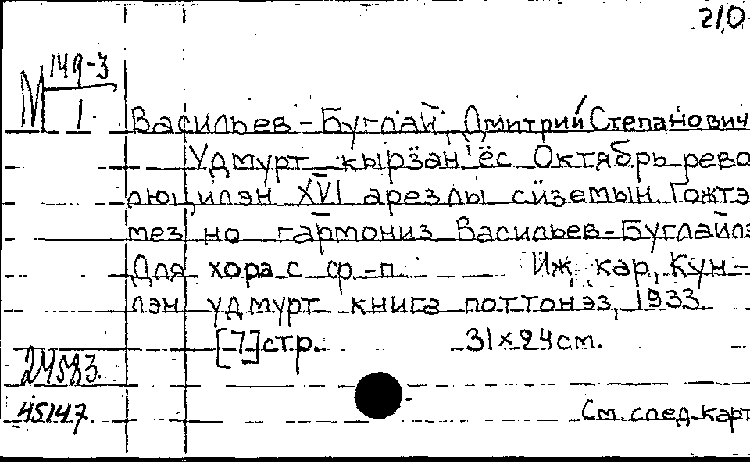 210
М 149-3
1
Васильев-Буглай, Дмитрий Степанович
Удмурт кырӟан'ёс Октябрь рево
люцилэн XVI арезлы сӥземын. Гожтэ
мез но гармониз Васильев-Буглайлэ
Для хора с ф.-п. Иж. кар, Кун-
лэн удмурт книга поттонэз, 1933.
[7] стр. 31x24см.
24583.
45147.
См. след. карт